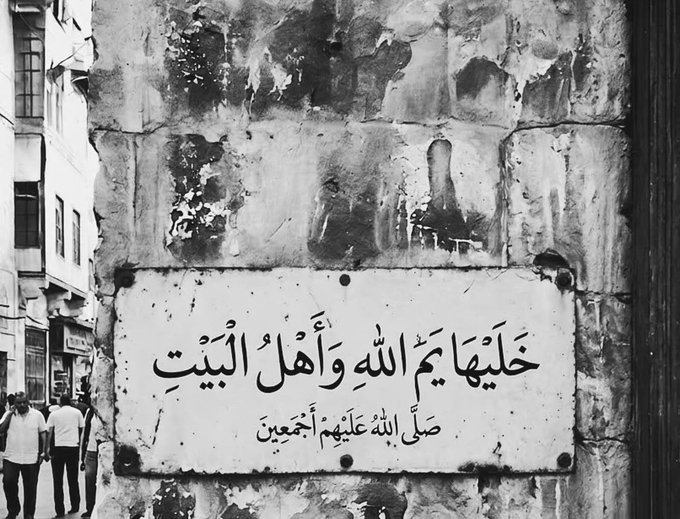 خَلَيْهَا يَمْ اللهِ وَأَهْلُ الْبَيْتِ
صَلَّى اللهُ عَلَيْهِمْ أَجْمَعِينَ